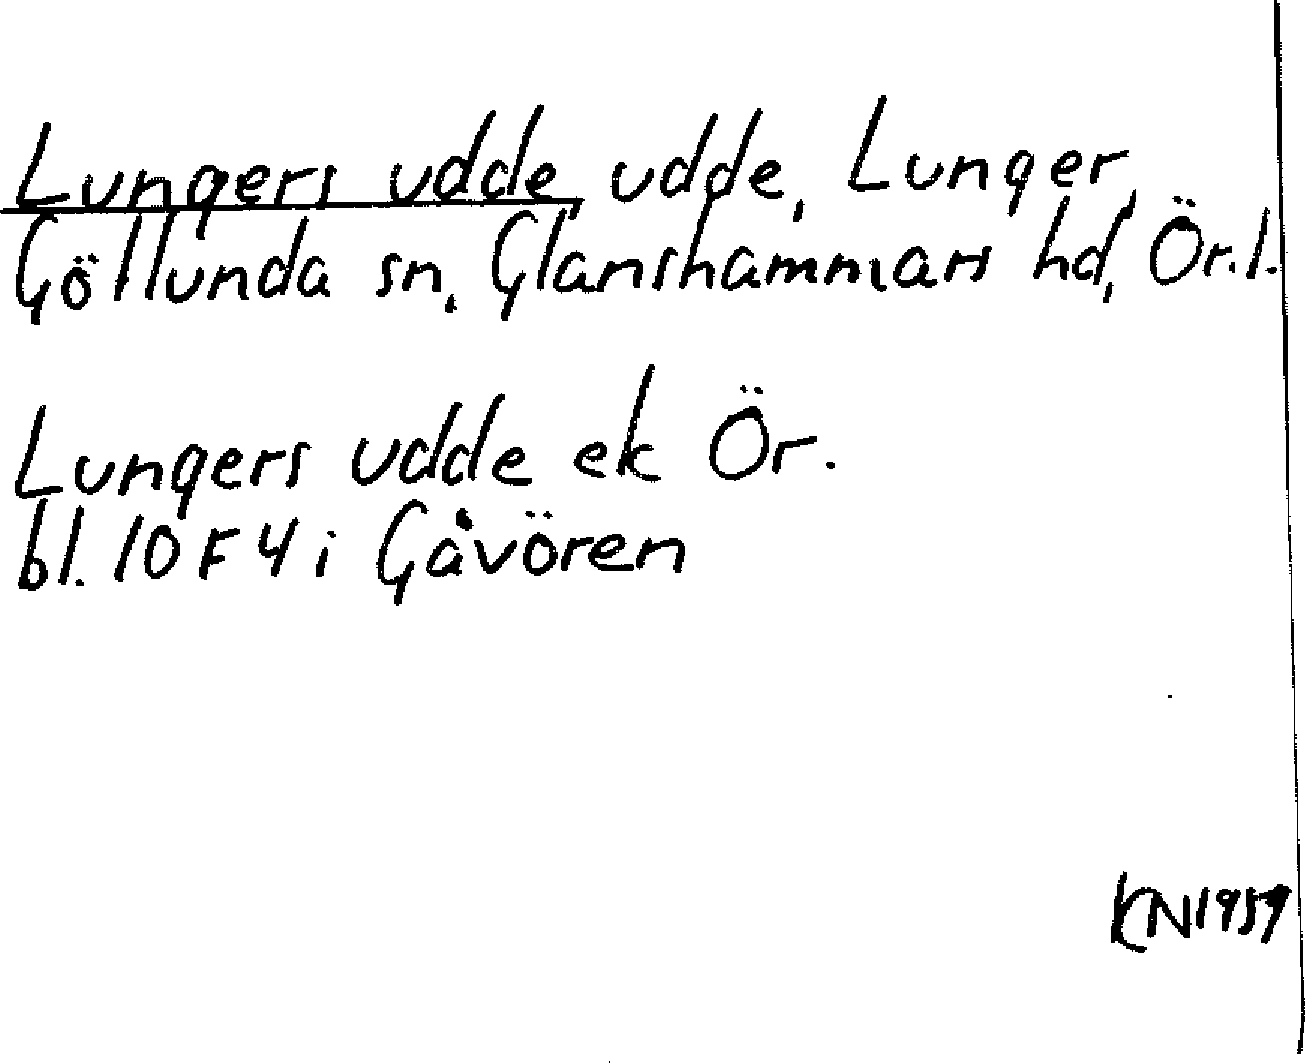 Lungers udde, udde, Lunger,
Götlunda sn, Glanshammars hd, Ör.l.
Lungers udde ek Ör.
bl. 10F4i Gåvören
KN1959